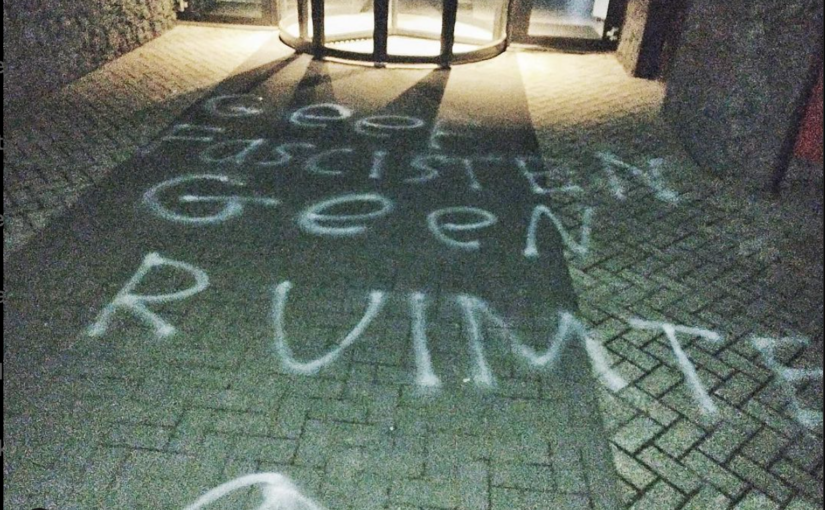 Geef
FascISTEN
GeeN
RUIMTE